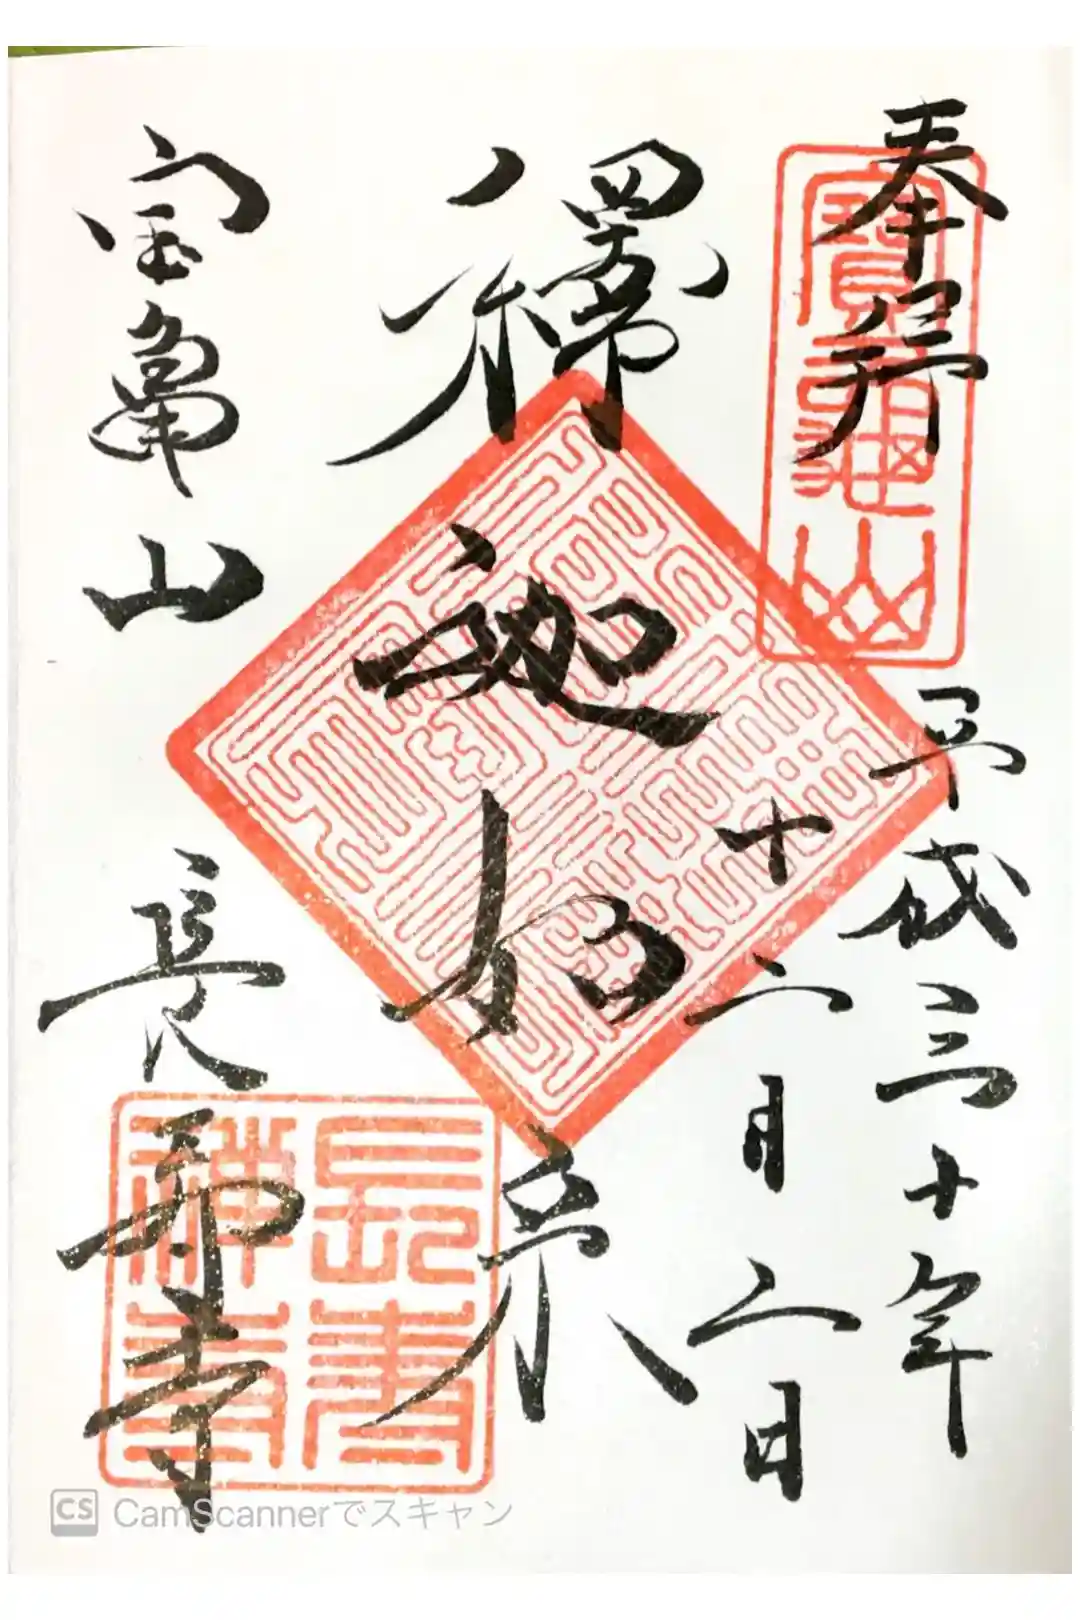 奉拝
平成三十年
十二月二日
釋迦如来
宝亀山
長寿寺
寶龜山
長壽
禪寺
CS CamScannerでスキャン